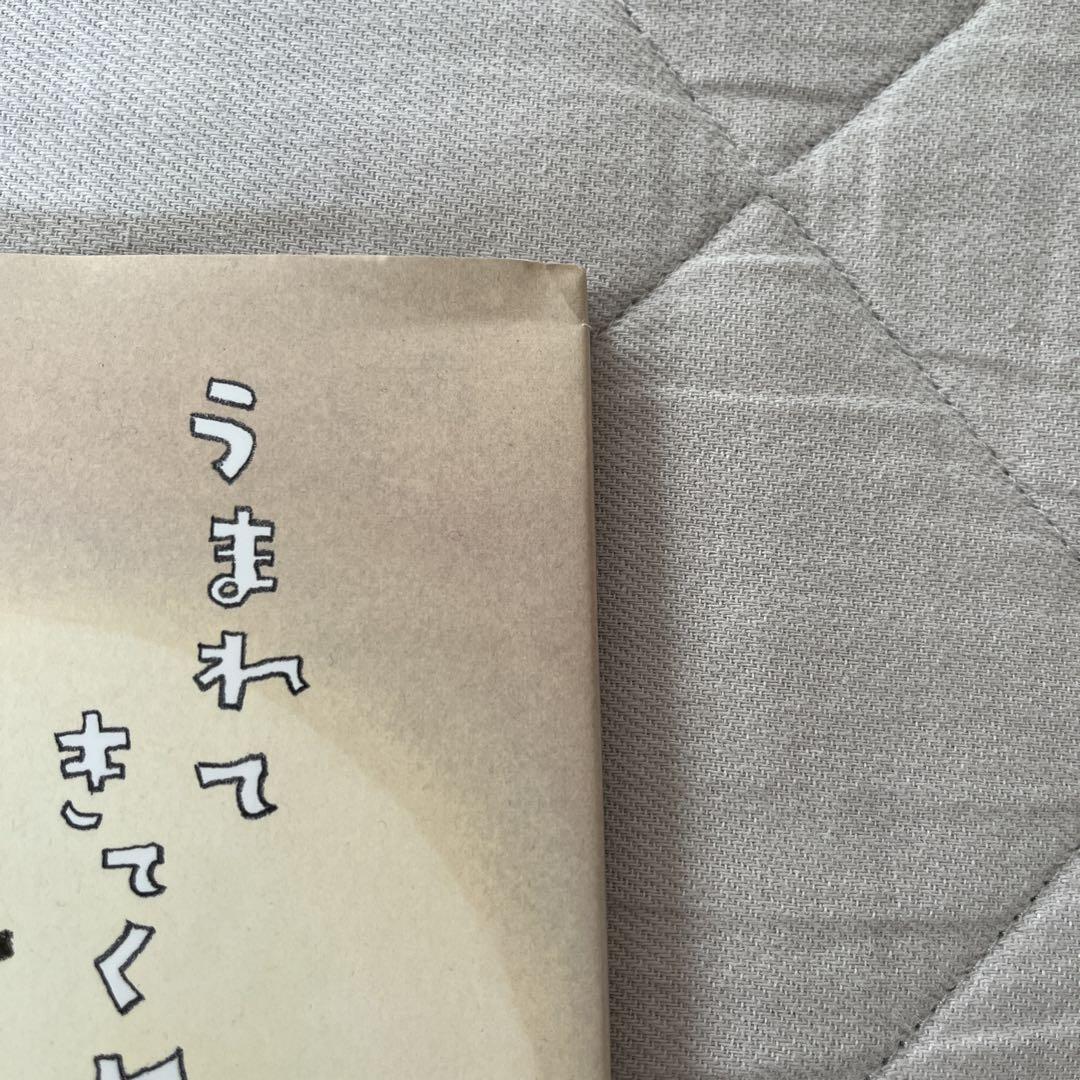 うまれて
きてく